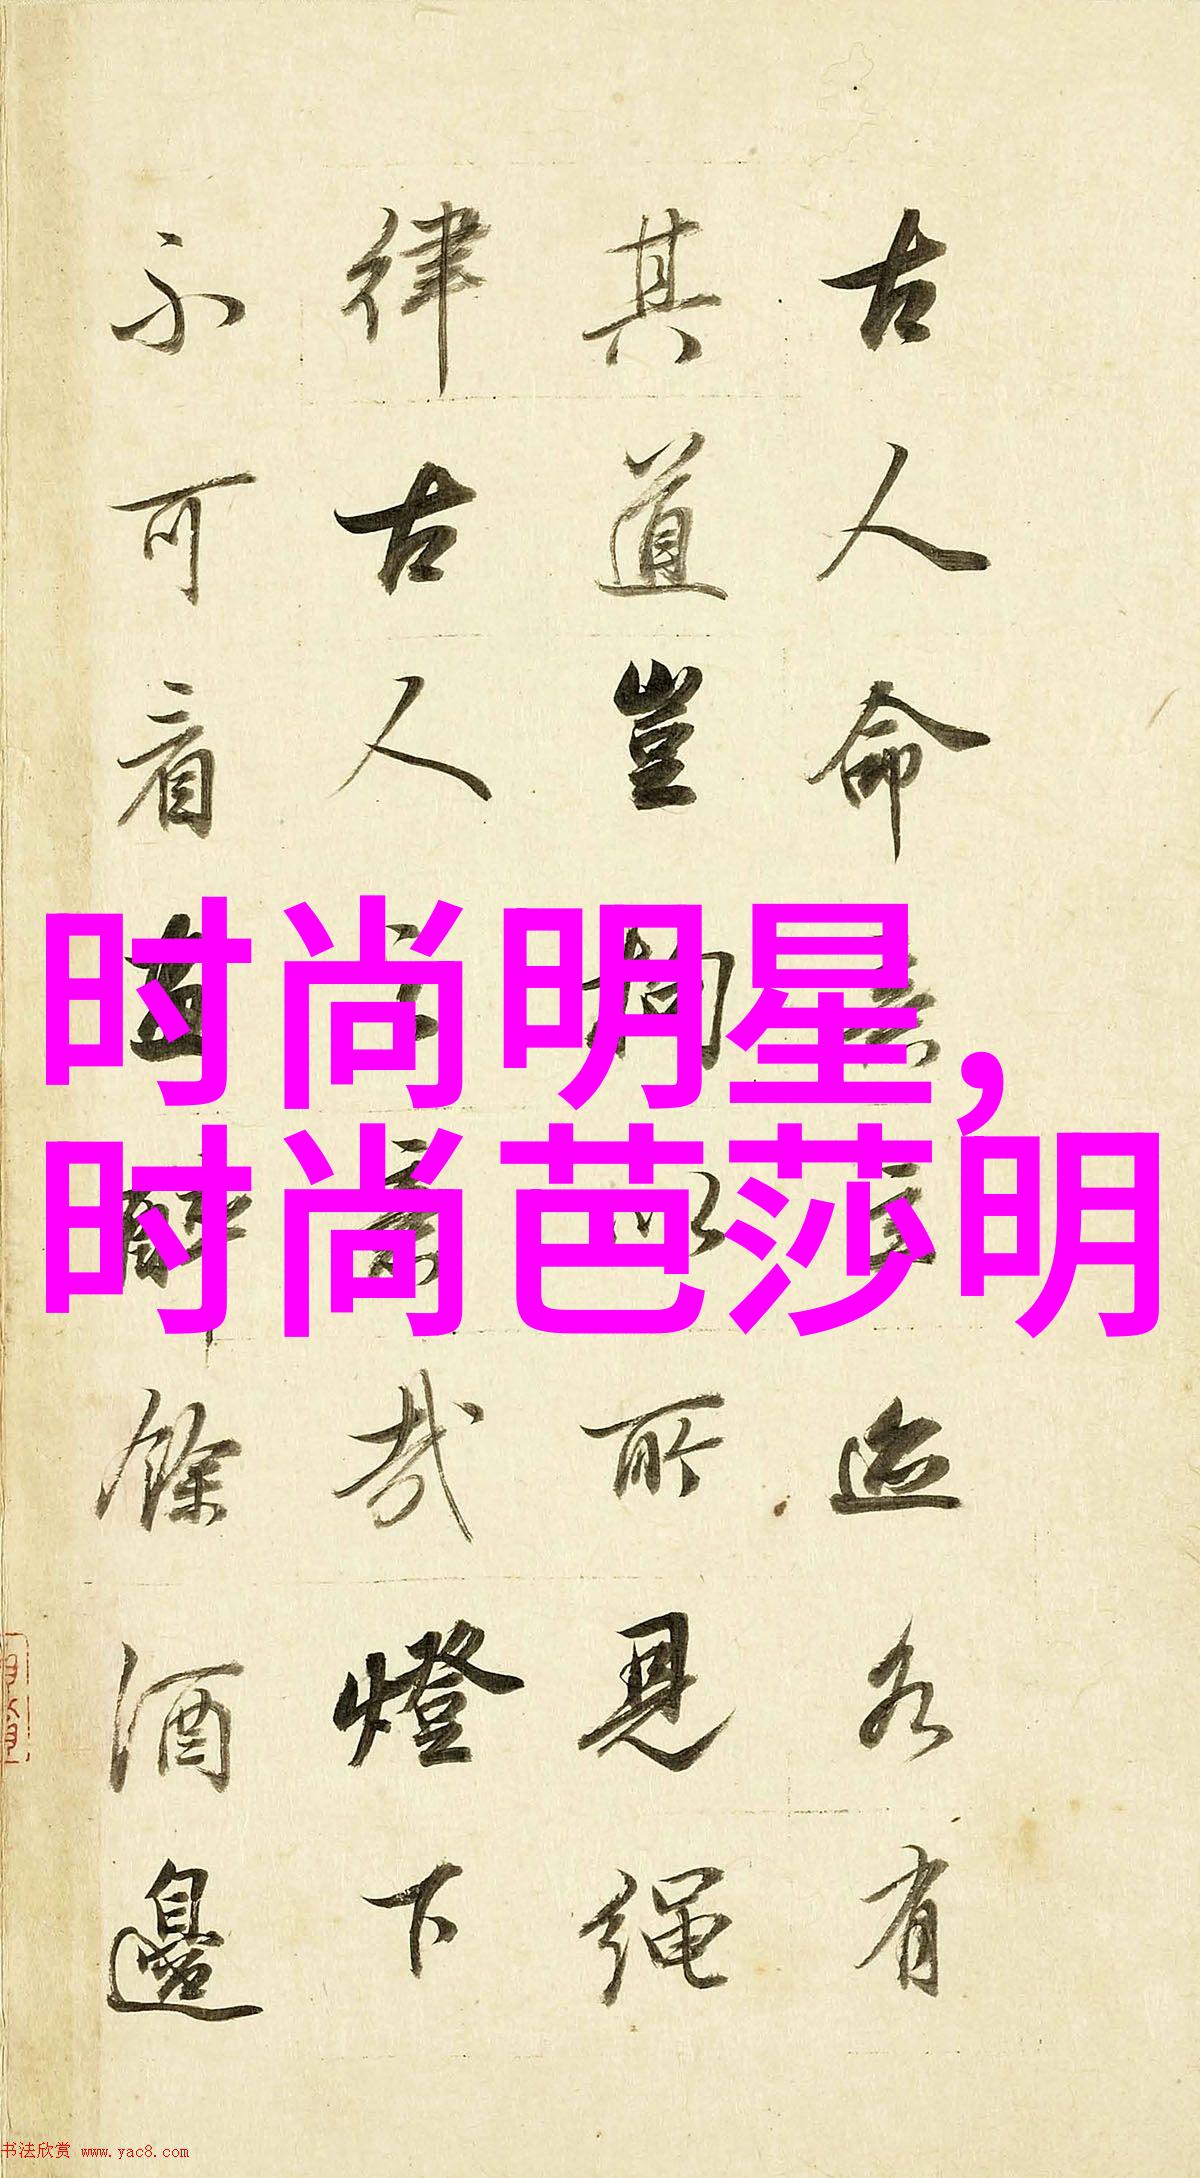 古人命迹各有
其道豈拘以所見繩
律古人意哉燈下
不可看畫醉餘酒邊
时尚明星,
时尚芭莎明
书法欣赏 www.yac8.com